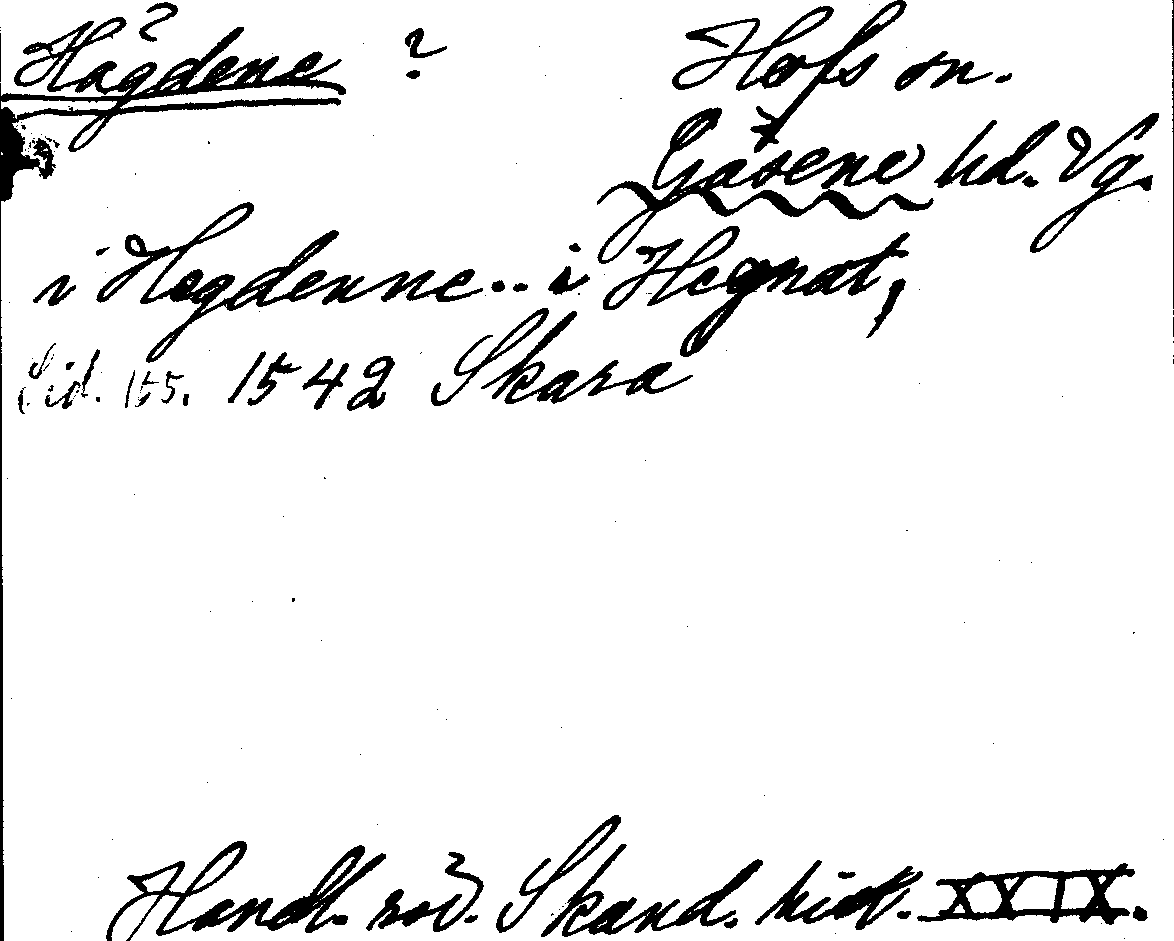 Hågdene ?
Hofs sn.
Gäsene hd. Vg.
i Hegdenne.. i Hegnat,
Sid. 155. 1542 Skara
Handl. röd. Skand. hist. XXIX.